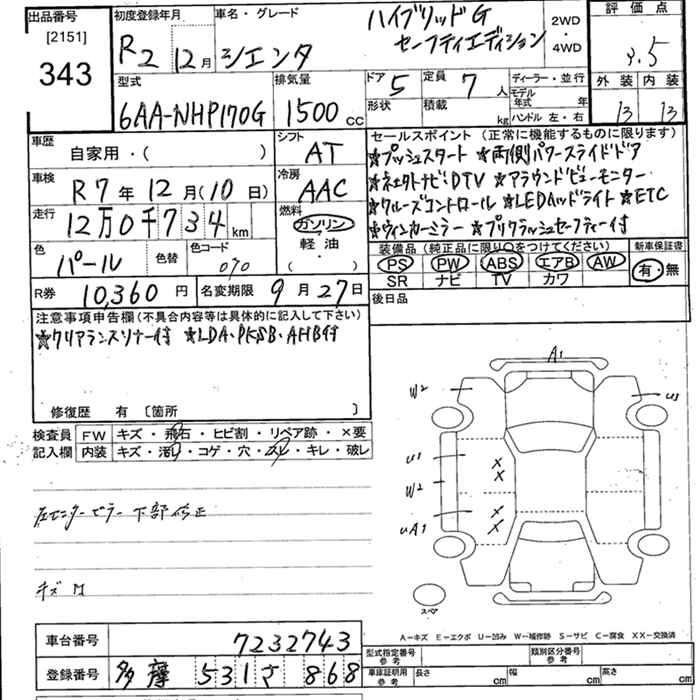 出品番号 [2151] 343
初度登録年月 R2年 12月
車名・グレード シエンタ ハイブリッドG セーフティエディション
2WD・4WD
評価点
外装 13 内装 13
型式 6AA-NHP170G
排気量 1500 CC
ドア 5
形状
定員 7 人
積載 kg
ディーラー・並行
モデル年式 年
ハンドル 左・右
車歴 自家用・( )
車検 R7年 12月(10日)
走行 12万0千734 km
色 パール 色替 色コード 070
シフト AT
冷房 AAC
燃料 ガソリン 軽油 ( )
R券 10,360 円 名変期限 9月27日
セールスポイント (正常に機能するものに限ります)
★プッシュスタート ★両側パワースライドドア
★ネクタトナビ・DTV ★アラウンドビューモニター
★クルーズコントロール ★LEDヘッドライト ★ETC
★ウィンカーミラー ★プリクラッシュセーフティー付
装備品 (純正品に限り○をつけてください) 新車保証書
PS PW ABS エアB AW 有・無
SR ナビ TV カワ
後日品
注意事項申告欄(不具合内容等は具体的に記入して下さい)
★クリアランスソナー付 ★LDA、PKSB、AHB付
修復歴 有 〔箇所 〕
検査員記入欄 FW キズ・飛石・ヒビ割・リペア跡・×要
内装 キズ・汚れ・コゲ・穴・スレ・キレ・破レ
左センターピラー下部修正
キズ M
A1
W2
U3
U1
W2
UA1
スペア
A-キズ E-エクボ U-凹み W-補修跡 S-サビ C-腐食 XX-交換済
車台番号 7232743
登録番号 多摩 531 さ 868
型式指定番号 参考 類別区分番号 参考
車庫証明用 参考 長さ cm 幅 cm 高さ cm